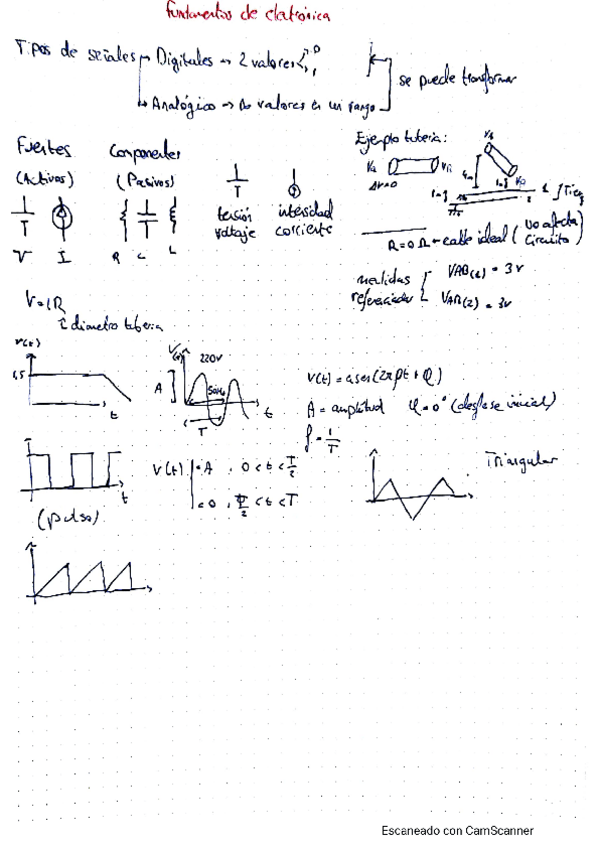 Fundamentos de eletrónica
Tipos de señales → Digitales → 2 valores 0
1
se puede transformar
→ Analógico → ∞ valores en un rango
Fuentes
(Activos)
Componentes
(Pasivos)
Ejemplo tuberia:
VA
VB
ΔV=0
VA
VB
tensión
voltaje
intensidad
corriente
V I
R C L
R=0 Ω ← cable ideal (No afecta
Circuito)
medidas
referenciadas
VAB(1) = 3v
VAB(2) = 3v
V=IR
diametro tuberia
v(t)
1,5
t
V(t)
220v
A
50Hz
T
t
V(t) = a sen(2π f t + φ)
A = amplitud φ=0° (desfase inicial)
f = 1/T
t
(pulso)
V(t) = A , 0 < t < T/2
= 0 , T/2 < t < T
Triangular
Escaneado con CamScanner